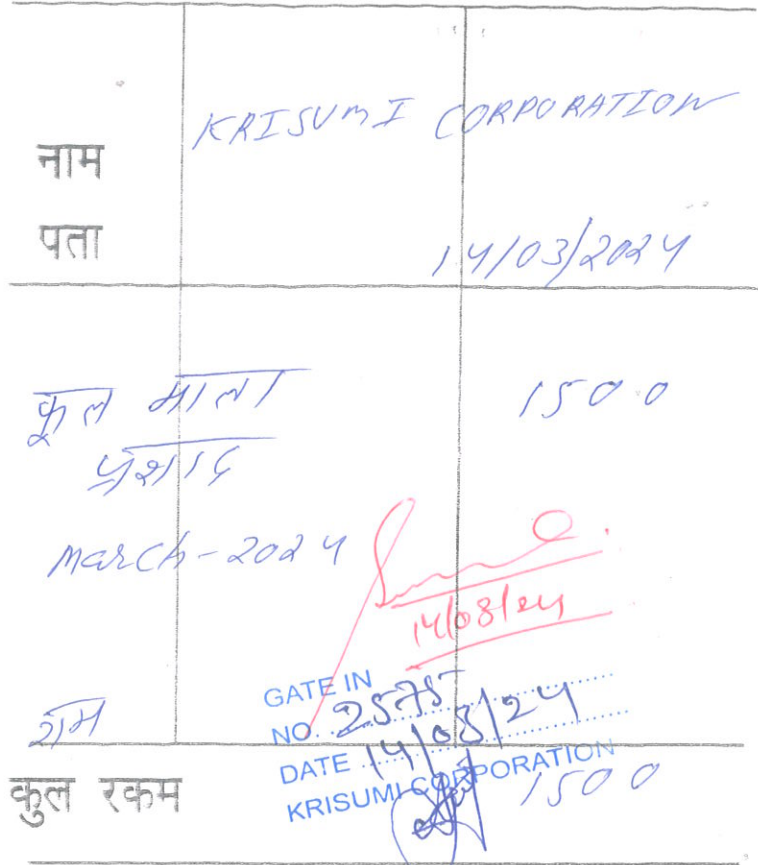 नाम KRISUMI CORPORATION
पता 14/03/2024
फूल माला 1500
प्रशाद
March-2024
14/03/24
GATE IN
NO 2575
राम
DATE 14/03/24
KRISUMI CORPORATION
कुल रकम 1500